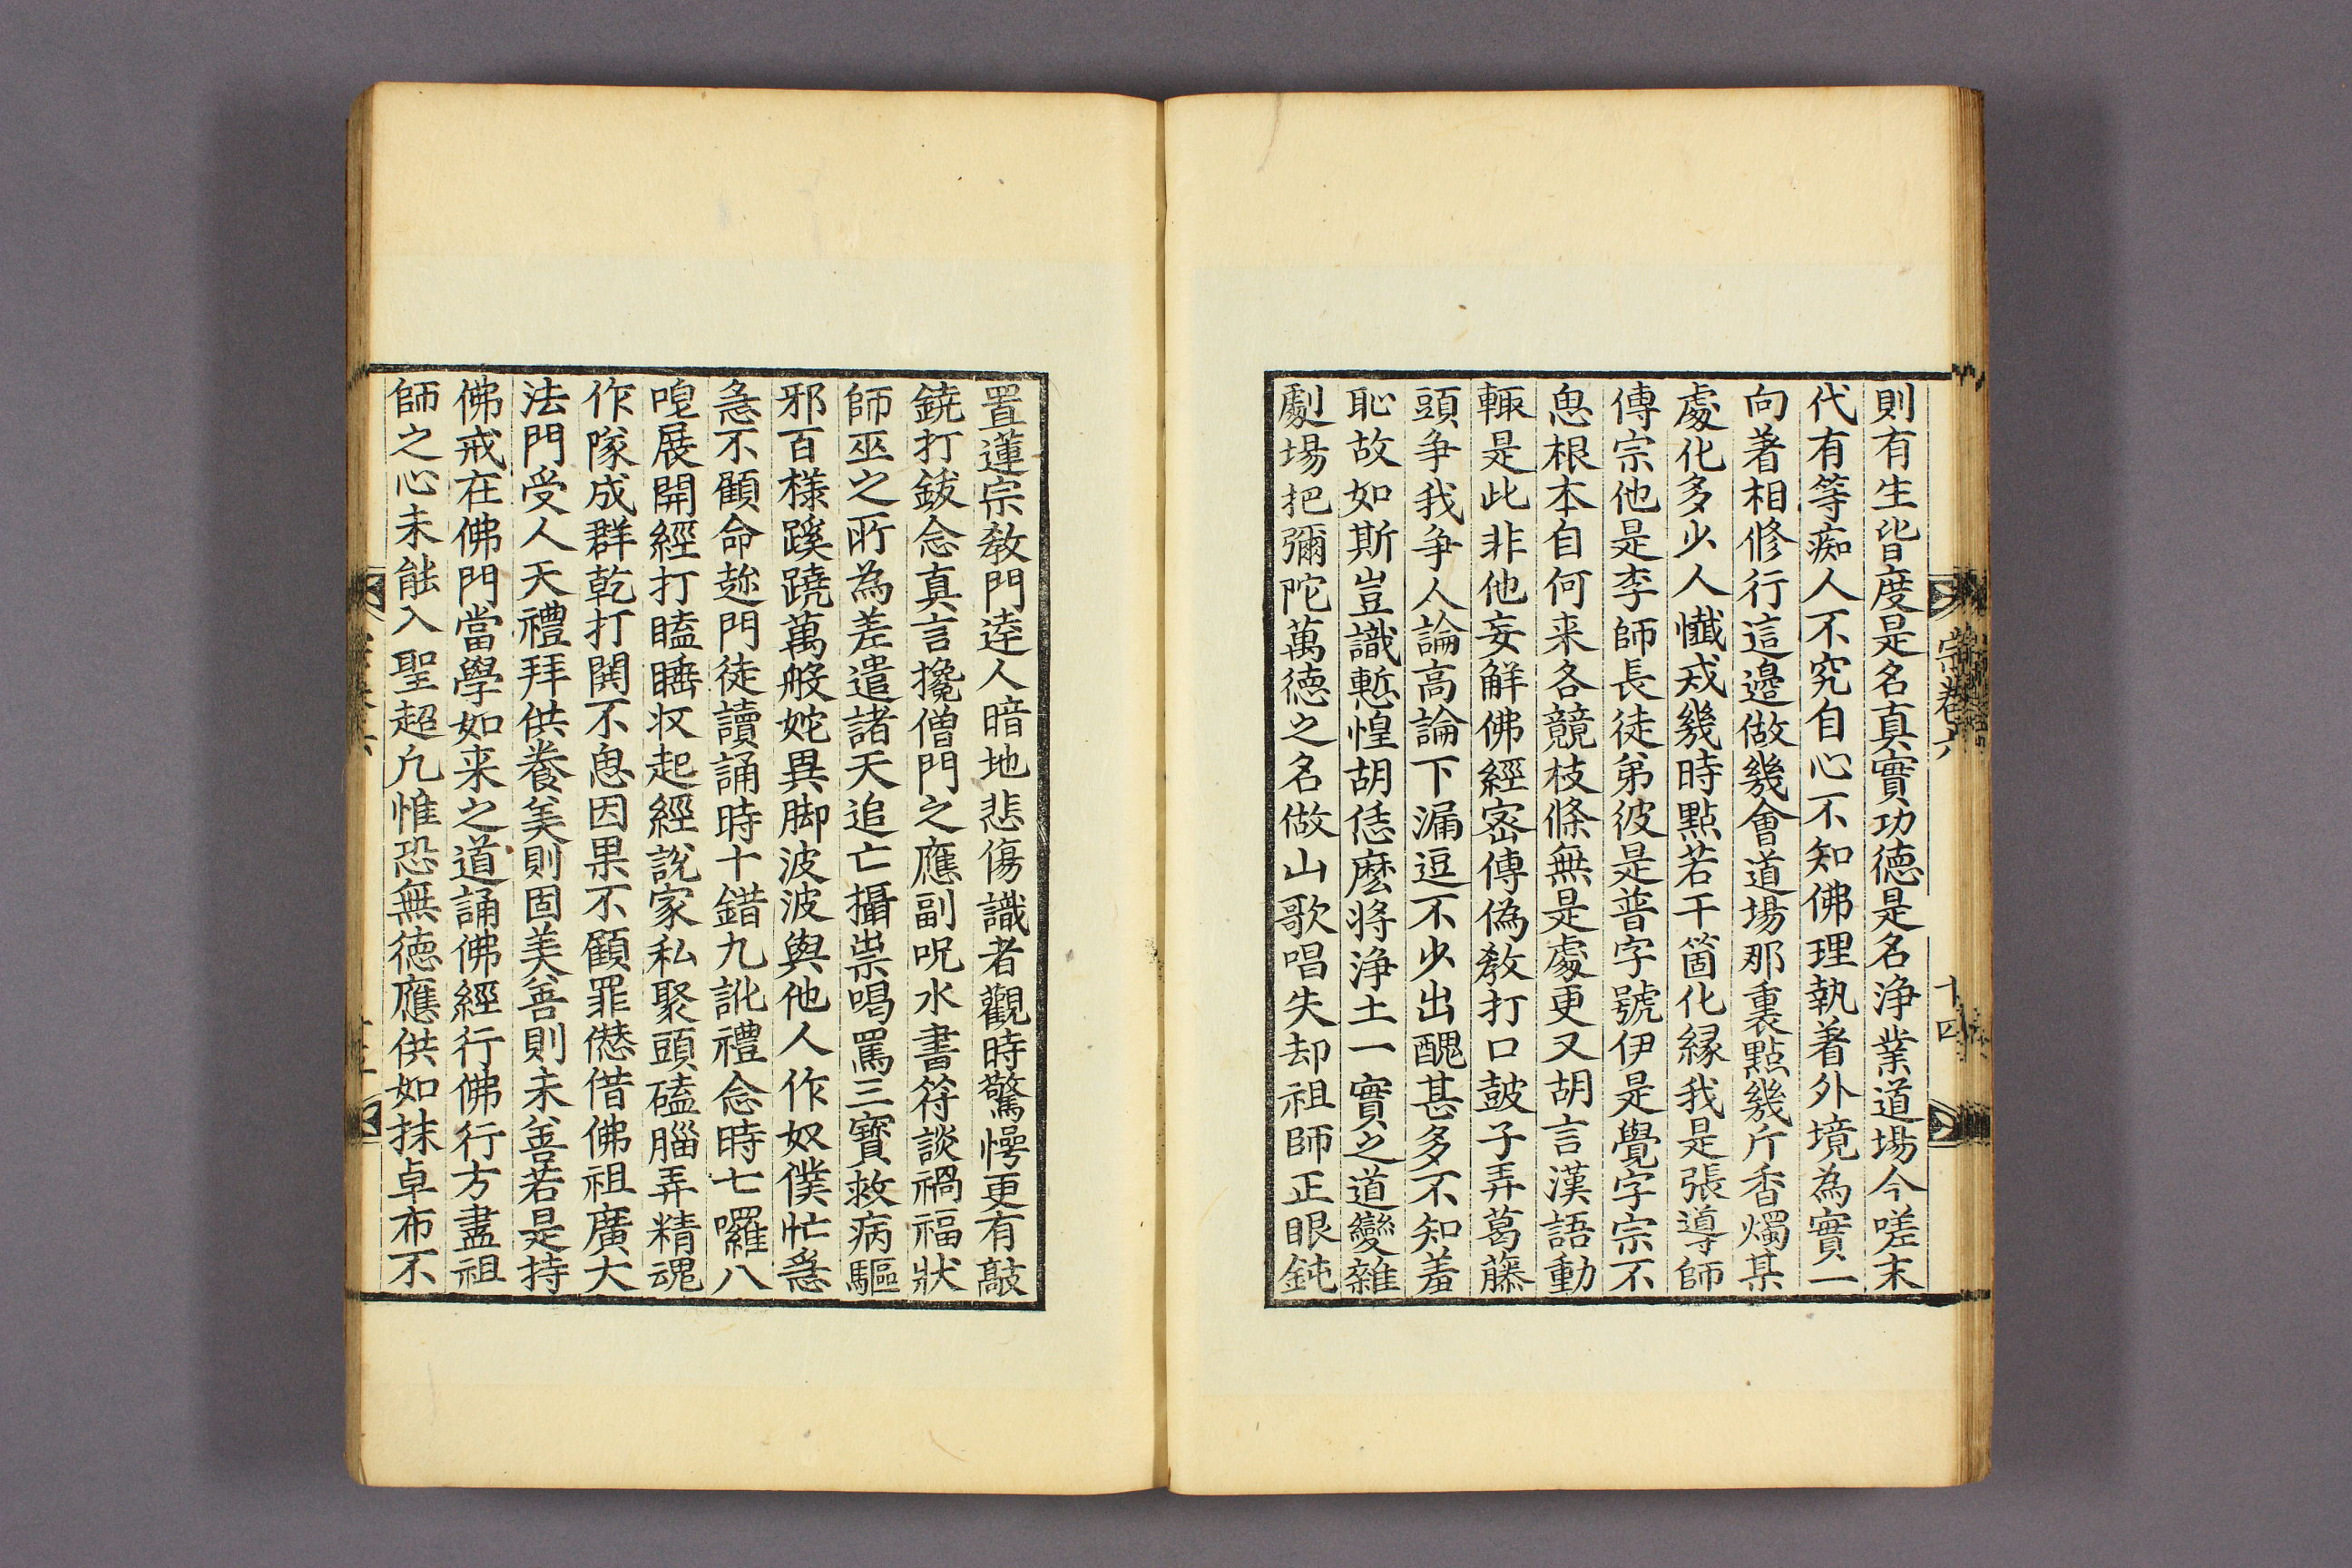 則有生皆度是名真實功德是名淨業道場今嗟末
代有等痴人不究自心不知佛理執著外境為實一
向著相修行這邊做幾會道場那裏點幾斤香燭某
處化多少人懺戒幾時點若干箇化緣我是張導師
傳宗他是李師長徒弟彼是普字號伊是覺字宗不
思根本自何来各競枝條無是處更又胡言漢語動
輙是此非他妄觧佛經密傳偽教打口皷子弄葛藤
頭争我争人論高論下漏逗不少出醜甚多不知羞
恥故如斯豈識慙惶胡恁麽将淨土一實之道變雜
劇場把彌陀萬德之名做山歌唱失却祖師正眼鈍
置蓮宗教門逹人暗地悲傷識者觀時驚愕更有敲
鐃打鈸念真言攙僧門之應副呪水書符談禍福狀
師巫之所為差遣諸天追亡攝祟喝罵三寶救病驅
邪百樣蹊蹺萬般姹異脚波波與他人作奴僕忙急
急不顧命趂門徒讀誦時十錯九訛禮念時七囉八
嗖展開經打瞌睡收起經說家私聚頭磕腦弄精魂
作隊成群乾打閧不思因果不顧罪愆借佛祖廣大
法門受人天禮拜供養美則固美善則未善若是持
佛戒在佛門當學如来之道誦佛經行佛行方盡祖
師之心未能入聖超凡惟恐無德應供如抹卓布不
宗卷六
十四